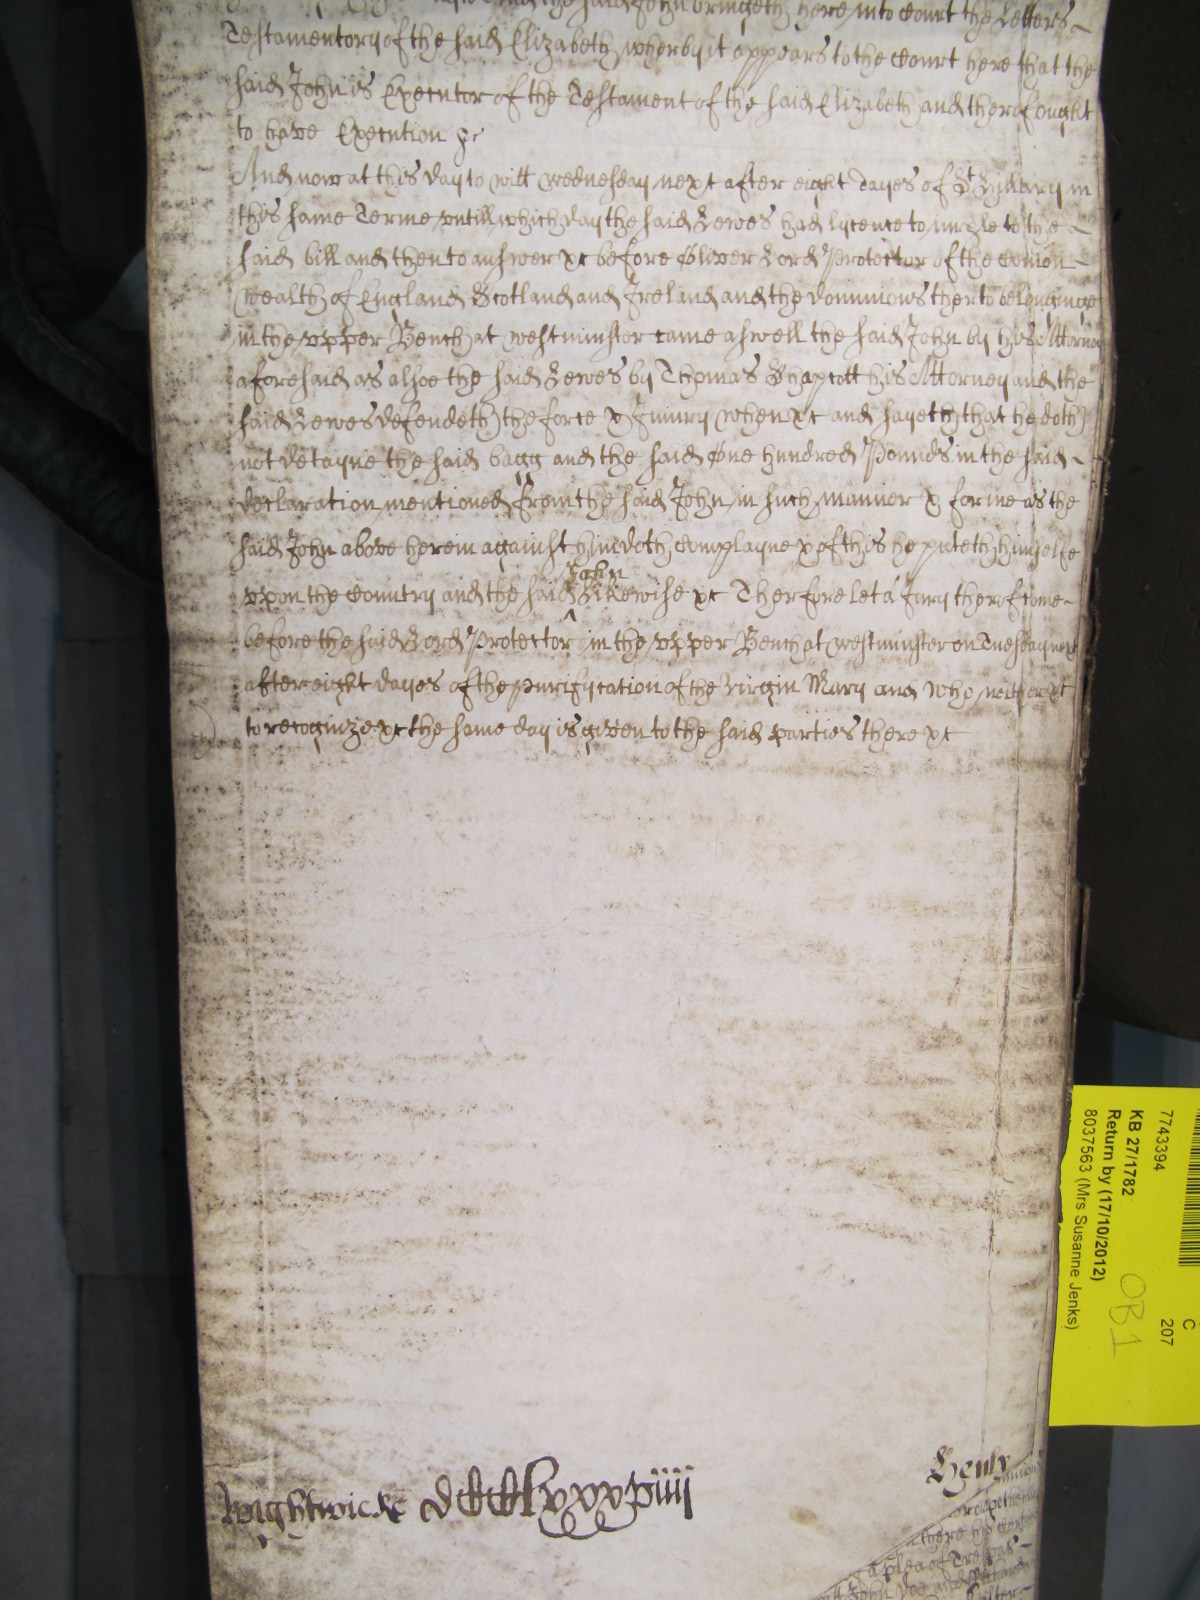 the said John bringeth here into Court the Letters
Testamentory of the said Elizabeth wherby it appeares to the Court here that the
said John is Executor of the Testament of the said Elizabeth and therof ought
to have Execution &c
And now at this day to witt wednesday next after eight dayes of St Hillary in
this same Terme untill which day the said Lewes had lycence to imple to the
said bill and then to answer &c before Oliver Lord Protector of the Comon
wealth of England Scotland and Ireland and the dominions therto belonginge
in the upper Bench at westminster came aswell the said John by his Attorney
aforesaid as alsoe the said Lewes by Thomas Shapcott his Attorney and the
said Lewes defendeth the force & Iniury when &c and sayeth that he doth
not detayne the said bagg and the said One hundred Pounds in the said
declaration mentioned from the said John in such manner & forme as the
said John above herein against him doth complayne & of this he puteth himselfe
John
upon the Country and the said Likewise &c Therfore let a Jury therof come
before the said Lord Protector in the upper Bench at westminster on Tuesday next
after eight dayes of the purifycation of the Virgin Mary and who neither &c
to recognize &c the same day is given to the said parties there &c
Wightwicke
Henly
there his
a plea of Trespas
John Doe and Richard
7743394
C
207
KB 27/1782
Return by (17/10/2012)
8037563 (Mrs Susanne Jenks)
OB1